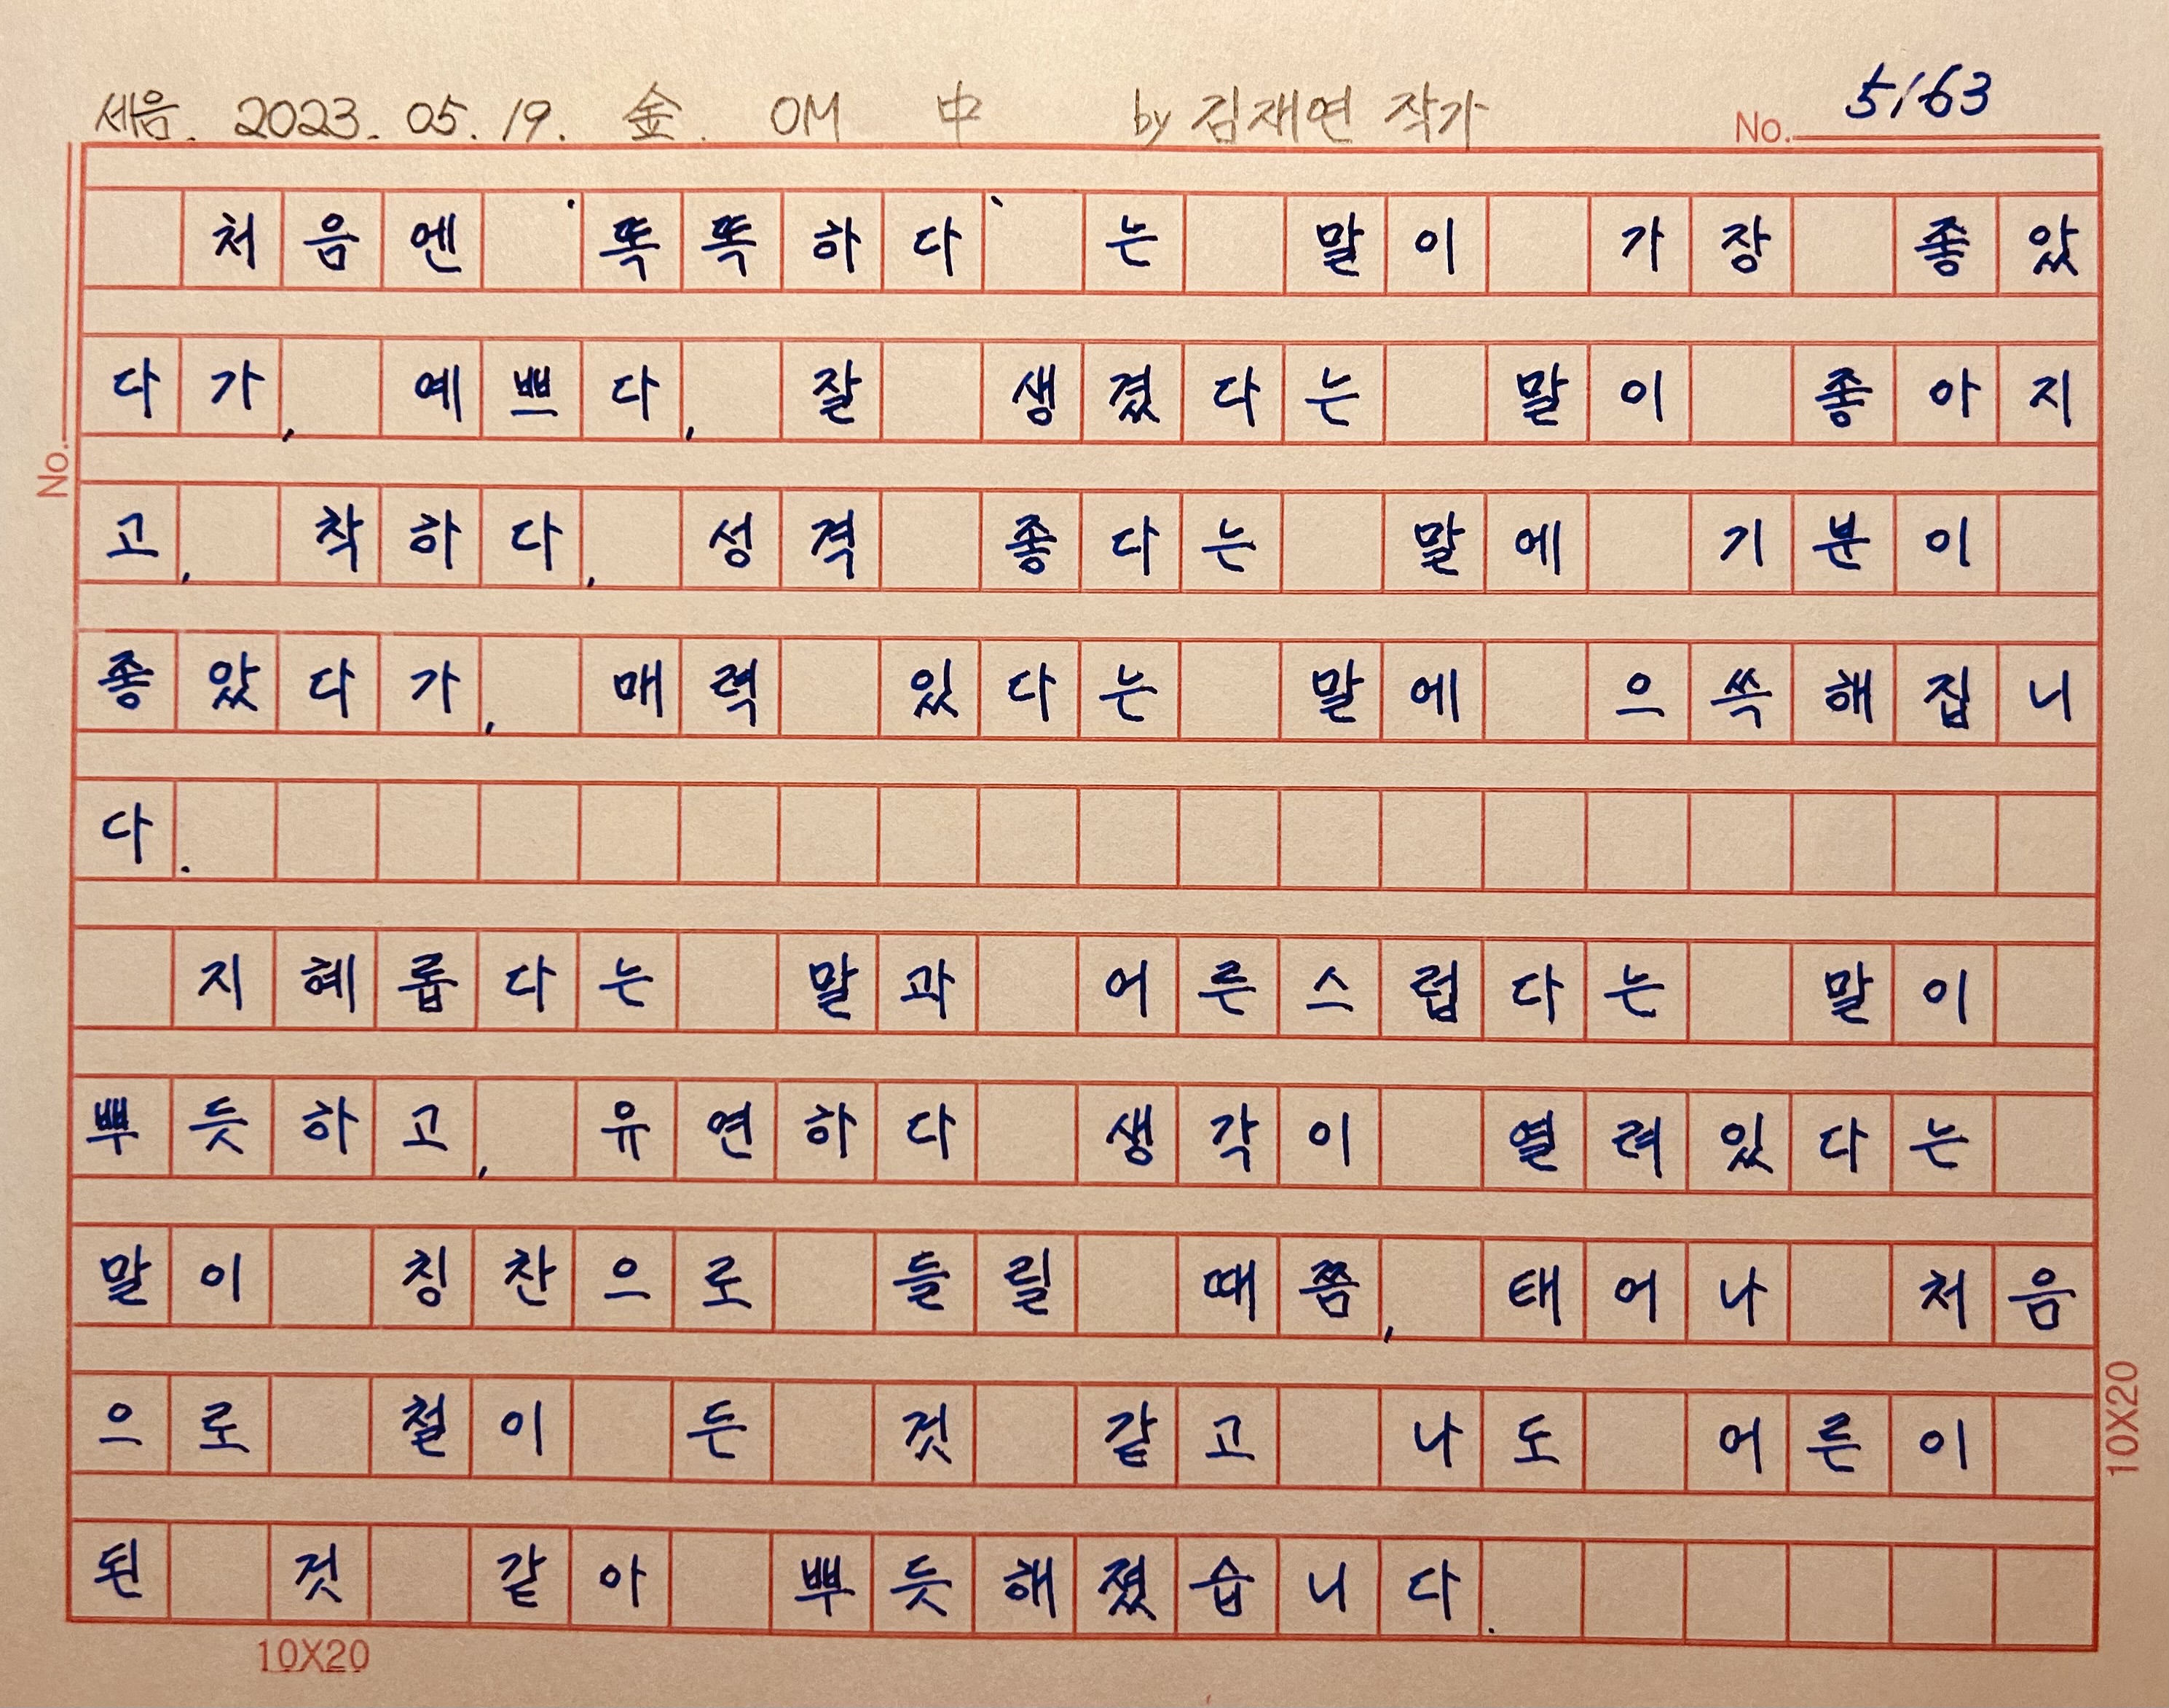 세음. 2023. 05. 19. 金. OM 中 by 김재연 작가
No. 5163
처음엔 '똑똑하다'는 말이 가장 좋았
다가, 예쁘다, 잘 생겼다는 말이 좋아지
고, 착하다, 성격 좋다는 말에 기분이
좋았다가, 매력 있다는 말에 으쓱해집니
다.
지혜롭다는 말과 어른스럽다는 말이
뿌듯하고, 유연하다 생각이 열려있다는
말이 칭찬으로 들릴 때쯤, 태어나 처음
으로 철이 든 것 같고 나도 어른이
된 것 같아 뿌듯해졌습니다.
No.
10X20
10X20